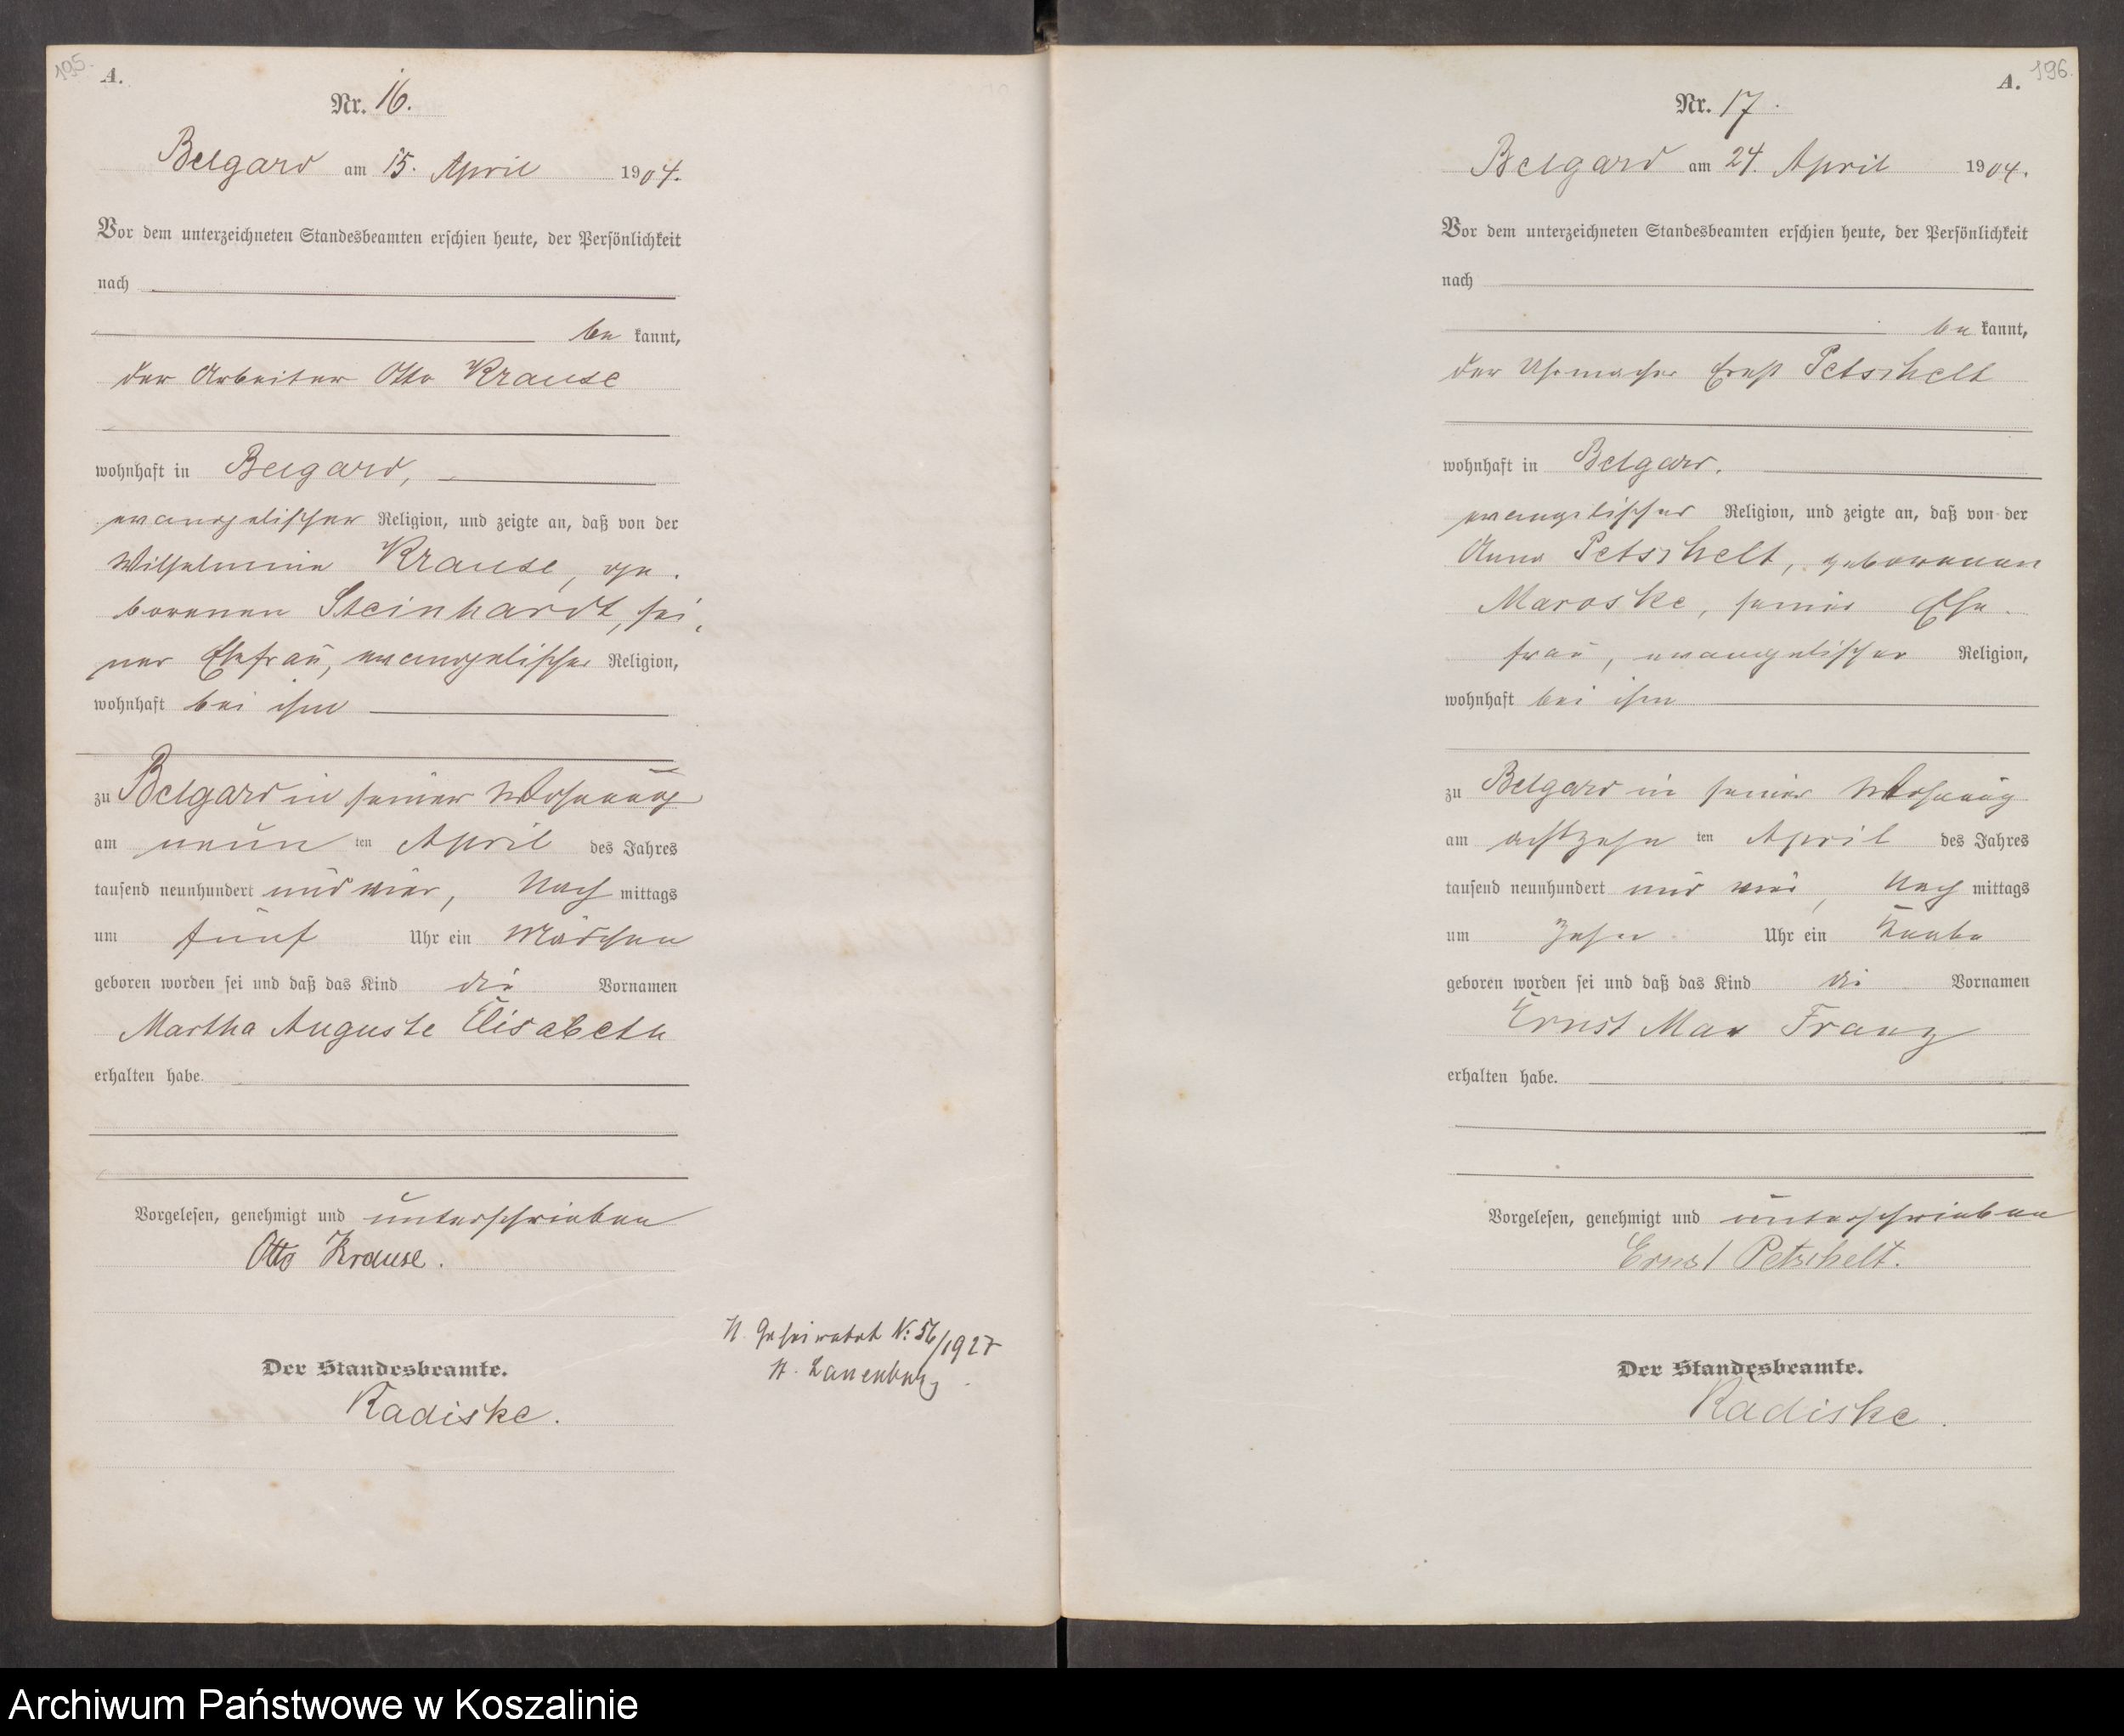 195.
A.
Nr. 16.
Belgard am 15. April 1904.
Vor dem unterzeichneten Standesbeamten erschien heute, der Persönlichkeit
nach
be kannt,
der Arbeiter Otto Krause
wohnhaft in Belgard,
evangelischer Religion, und zeigte an, daß von der
Wilhelmine Krause, ge-
borenen Steinhardt, sei-
ner Ehefrau, evangelischer Religion,
wohnhaft bei ihm
zu Belgard in seiner Wohnung
am neun ten April des Jahres
tausend neunhundert und vier, Nach mittags
um fünf Uhr ein Mädchen
geboren worden sei und daß das Kind die Vornamen
Martha Auguste Elisabeth
erhalten habe.
Vorgelesen, genehmigt und unterschrieben
Otto Krause.
Der Standesbeamte.
Radiske.
H. Geheiratet N: 56/1927
St. Lauenburg
196.
A.
Nr. 17.
Belgard am 24. April 1904.
Vor dem unterzeichneten Standesbeamten erschien heute, der Persönlichkeit
nach
be kannt,
der Uhrmacher Ernst Petschelt
wohnhaft in Belgard,
evangelischer Religion, und zeigte an, daß von der
Anna Petschelt, geborenen
Maroske, seiner Ehe-
frau, evangelischer Religion,
wohnhaft bei ihm
zu Belgard in seiner Wohnung
am achtzehn ten April des Jahres
tausend neunhundert und vier, Nach mittags
um zehn Uhr ein Knabe
geboren worden sei und daß das Kind die Vornamen
Ernst Max Franz
erhalten habe.
Vorgelesen, genehmigt und unterschrieben
Ernst Petschelt.
Der Standesbeamte.
Radiske.
Archiwum Państwowe w Koszalinie